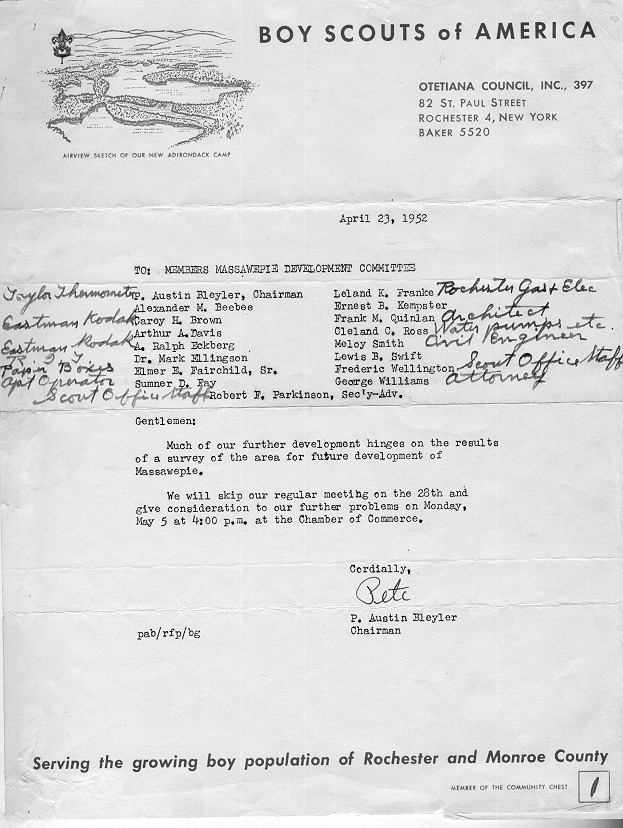 BOY SCOUTS of AMERICA
AIRVIEW SKETCH OF OUR NEW ADIRONDACK CAMP
OTETIANA COUNCIL, INC., 397
82 ST. PAUL STREET
ROCHESTER 4, NEW YORK
BAKER 5520
April 23, 1952
TO: MEMBERS MASSAWEPIE DEVELOPMENT COMMITTEE
Taylor Thermometer P. Austin Bleyler, Chairman
Alexander M. Beebee
Eastman Kodak Carey H. Brown
Arthur A. Davis
Eastman Kodak A. Ralph Eckberg
R I T Dr. Mark Ellingson
Paper Boxes Elmer E. Fairchild, Sr.
Apt Operator Sumner D. Fay
Scout Office Staff Robert F. Parkinson, Sec'y-Adv.
Leland K. Franke Rochester Gas & Elec
Ernest B. Kempster
Frank M. Quinlan Architect
Cleland C. Ross Water pumps etc.
Meloy Smith Civil Engineer
Lewis B. Swift
Frederic Wellington Scout Office Staff
George Williams Attorney
Gentlemen:
Much of our further development hinges on the results
of a survey of the area for future development of
Massawepie.
We will skip our regular meeting on the 28th and
give consideration to our further problems on Monday,
May 5 at 4:00 p.m. at the Chamber of Commerce.
Cordially,
Pete
P. Austin Bleyler
Chairman
pab/rfp/bg
Serving the growing boy population of Rochester and Monroe County
MEMBER OF THE COMMUNITY CHEST
1